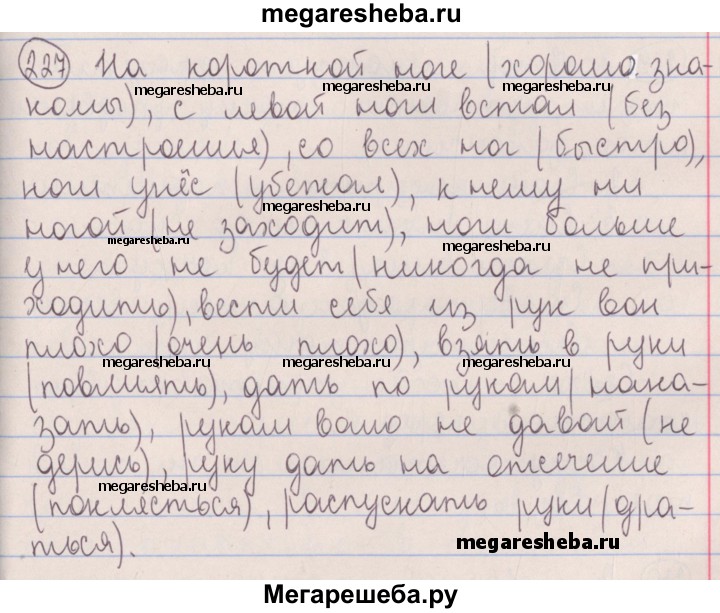 megaresheba.ru
227 На короткой ноге (хорошо зна-
megaresheba.ru megaresheba.ru
комы), с левой ноги встал (без
настроения), со всех ног (быстро),
megaresheba.ru
ноги унёс (убежал), к нему ни
megaresheba.ru
ногой (не заходит), ноги больше
megaresheba.ru megaresheba.ru
у него не будет (никогда не при-
ходить), вести себя из рук вон
плохо (очень плохо), взять в руки
megaresheba.ru megaresheba.ru megaresheba.ru
(повлиять), дать по рукам (нака-
зать), рукам волю не давай (не
дерись), руку дать на отсечение
megaresheba.ru
(поклясться), распускать руки (дра-
ться).
megaresheba.ru
Мегарешеба.ру